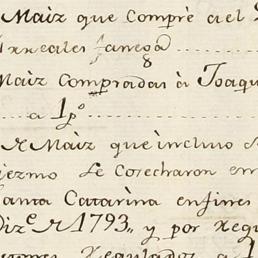 Maiz que compré a el
reales fanega
8
Maiz Compradas à Joaqu
a 1 p.º
Maiz que incluso
iezmo se Cosecharon en
Santa Catarina enfines
Diz.e 1793,, y por
Regulados a 1